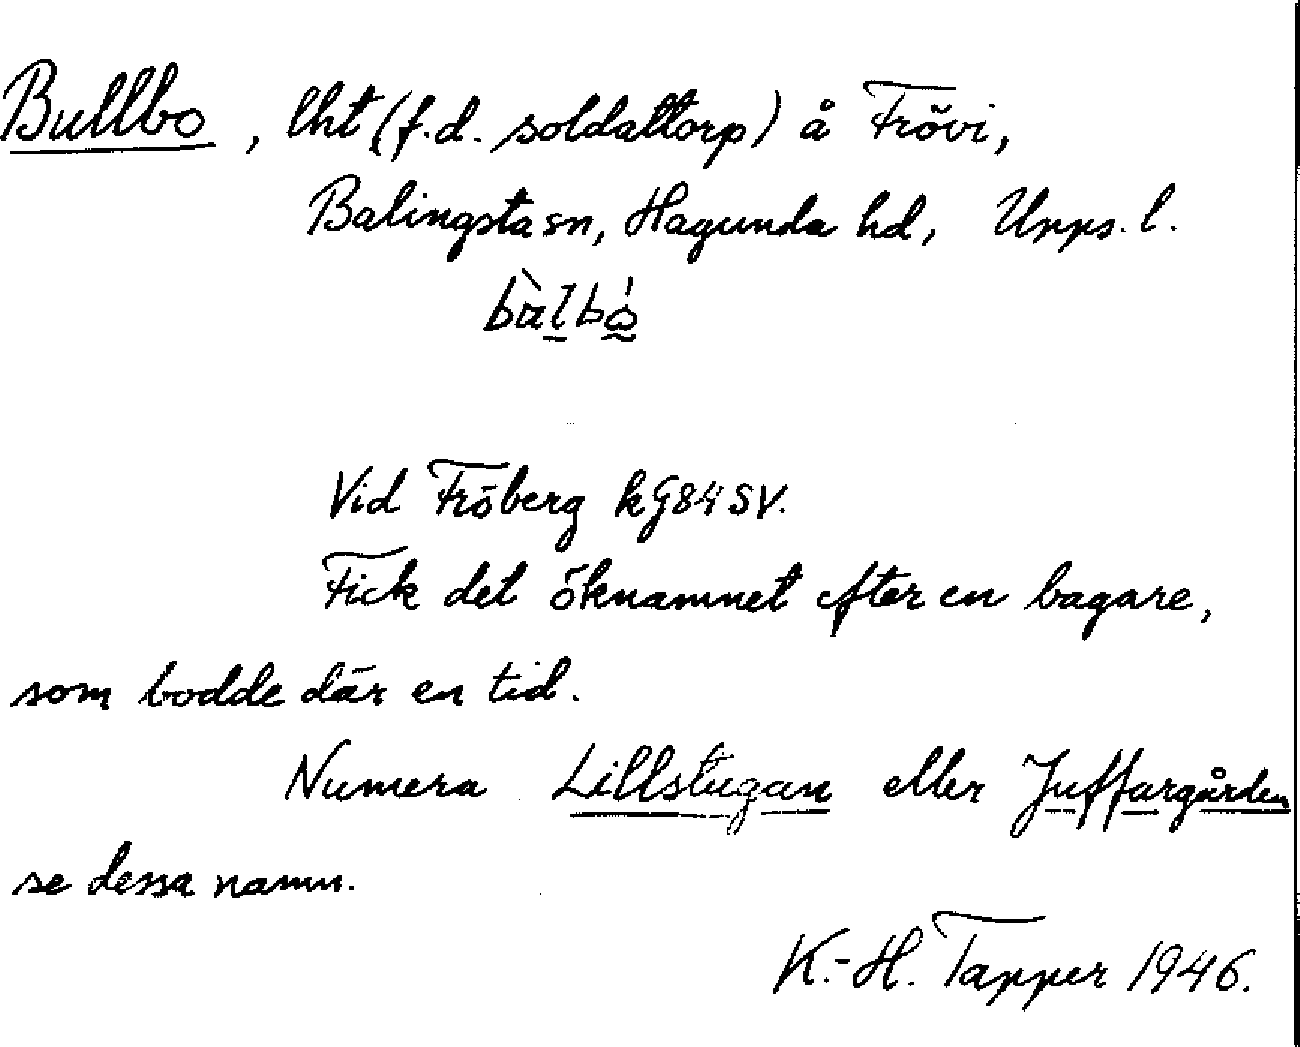 Bullbo, lht (f.d. soldattorp) å Frövi,
Balingsta sn, Hagunda hd, Upps. l.
bàlbó
Vid Fröberg kG84SV.
Fick det öknamnet efter en bagare,
som bodde där en tid.
Numera Lillstugan eller Juffargården
se dessa namn.
K.-H. Tapper 1946.